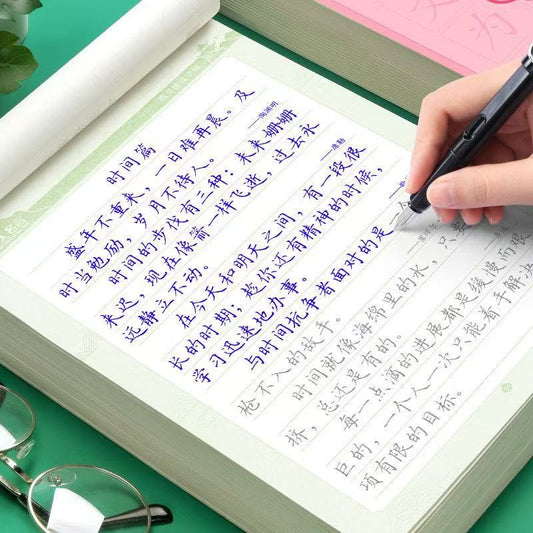 时间篇
盛年不重来，一日难再晨。及
时当勉励，岁月不待人。
——陶渊明
时间的步伐有三种：未来姗姗
来迟，现在像箭一样飞逝，过去永
远静立不动。
——席勒
在今天和明天之间，有一段很
长的时期；趁你还有精神的时候，
学习迅速地办事。
与时间抗争者面对的是一个
枪不入的敌手。
时间就像海绵里的水，只要
挤，总还是有的。
每一点滴的进展都是缓慢而艰
巨的，一个人一次只能着手解决
项有限的目标。